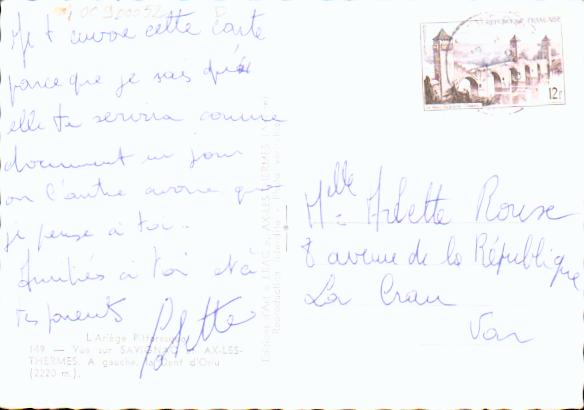 Je t'envoie cette carte
parce que je sais qu'
elle te servira comme
document un jour
ou l'autre avoue que
je pense à toi.
Amitiés à toi et à
tes parents
Colette
L'Ariège Pittoresque
149 — Vue sur SAVIGNAC et AX-LES-
THERMES. A gauche, la Dent d'Orlu
(2220 m.).
REPUBLIQUE FRANÇAISE
12F
Melle Arlette Rouse
8 avenue de la République
La Crau
Var